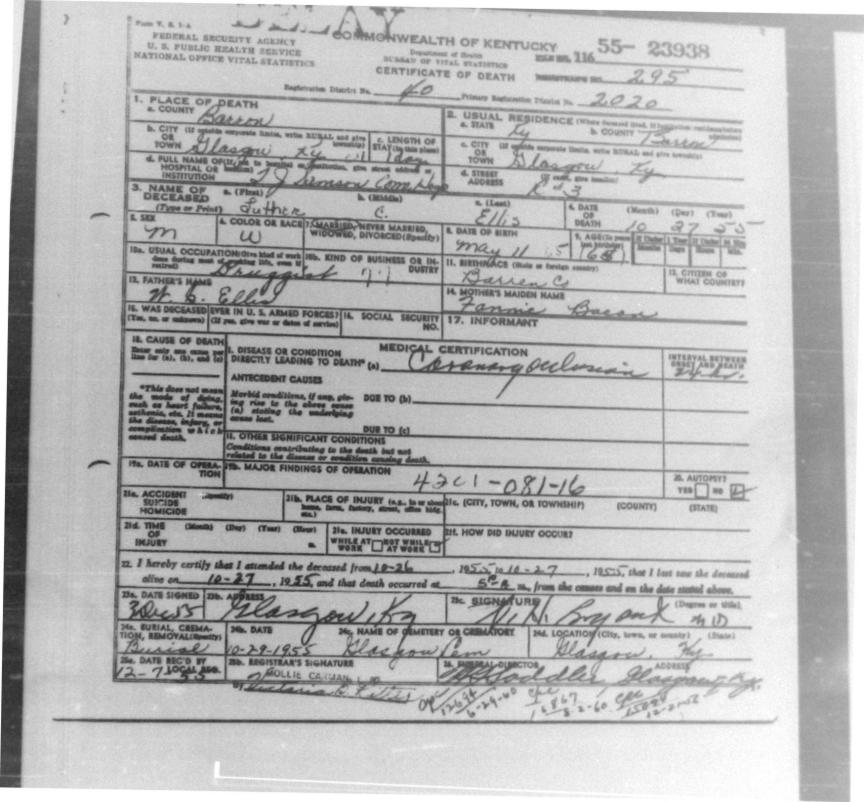 Form V. S. 1-A
FEDERAL SECURITY AGENCY
U. S. PUBLIC HEALTH SERVICE
NATIONAL OFFICE VITAL STATISTICS
COMMONWEALTH OF KENTUCKY
Department of Health
BUREAU OF VITAL STATISTICS
CERTIFICATE OF DEATH
55- 23938
FILE NO. 116
REGISTRAR'S NO. 295
Registration District No. 40 Primary Registration District No. 2020
1. PLACE OF DEATH
a. COUNTY Barren
b. CITY (If outside corporate limits, write RURAL and give township)
OR TOWN Glasgow Ky
c. LENGTH OF STAY (in this place) 1 day
d. FULL NAME OF (If not in hospital or institution, give street address or location)
HOSPITAL OR INSTITUTION T J Samson Com Hosp
2. USUAL RESIDENCE (Where deceased lived, if institution: residence before admission)
a. STATE Ky b. COUNTY Barren
c. CITY (If outside corporate limits, write RURAL and give township)
OR TOWN Glasgow Ky
d. STREET ADDRESS (If rural, give location) R #3
3. NAME OF DECEASED
(Type or Print)
a. (First) Luther
b. (Middle) C.
c. (Last) Ellis
4. DATE OF DEATH (Month) (Day) (Year) 10 27 55
5. SEX M
6. COLOR OR RACE W
7. MARRIED, NEVER MARRIED, WIDOWED, DIVORCED (Specify)
8. DATE OF BIRTH May 11
9. AGE (In years last birthday)
If Under 1 Year Months Days
If Under 24 Hrs Hours Min.
10a. USUAL OCCUPATION (Give kind of work done during most of working life, even if retired) Druggist
10b. KIND OF BUSINESS OR INDUSTRY
11. BIRTHPLACE (State or foreign country) Barren Co
12. CITIZEN OF WHAT COUNTRY?
13. FATHER'S NAME
Ellis
14. MOTHER'S MAIDEN NAME
Fannie Bacon
15. WAS DECEASED EVER IN U. S. ARMED FORCES?
(Yes, no, or unknown) (If yes, give war or dates of service)
16. SOCIAL SECURITY NO.
17. INFORMANT
18. CAUSE OF DEATH
Enter only one cause per line for (a), (b), and (c)
MEDICAL CERTIFICATION
INTERVAL BETWEEN ONSET AND DEATH
I. DISEASE OR CONDITION
DIRECTLY LEADING TO DEATH* (a) Coronary occlusion 24 hr.
ANTECEDENT CAUSES
*This does not mean the mode of dying, such as heart failure, asthenia, etc. It means the disease, injury, or complication which caused death.
Morbid conditions, if any, giving rise to the above cause (a) stating the underlying cause last.
DUE TO (b)
DUE TO (c)
II. OTHER SIGNIFICANT CONDITIONS
Conditions contributing to the death but not related to the disease or condition causing death.
19a. DATE OF OPERATION
19b. MAJOR FINDINGS OF OPERATION
4201-081-16
20. AUTOPSY?
YES NO
21a. ACCIDENT SUICIDE HOMICIDE (Specify)
21b. PLACE OF INJURY (e.g., in or about home, farm, factory, street, office bldg. etc.)
21c. (CITY, TOWN, OR TOWNSHIP) (COUNTY) (STATE)
21d. TIME OF INJURY (Month) (Day) (Year) (Hour) m.
21e. INJURY OCCURRED
WHILE AT WORK NOT WHILE AT WORK
21f. HOW DID INJURY OCCUR?
22. I hereby certify that I attended the deceased from 10-26, 1955, to 10-27, 1955, that I last saw the deceased
alive on 10-27, 1955, and that death occurred at m., from the causes and on the date stated above.
23a. DATE SIGNED
23b. ADDRESS Glasgow, Ky
23c. SIGNATURE (Degree or title) MD
24a. BURIAL, CREMATION, REMOVAL (Specify) Burial
24b. DATE 10-29-1955
24c. NAME OF CEMETERY OR CREMATORY Glasgow Cem
24d. LOCATION (City, town, or county) (State) Glasgow, Ky.
25a. DATE REC'D BY LOCAL REG. 12-7-55
25b. REGISTRAR'S SIGNATURE
26. FUNERAL DIRECTOR ADDRESS
Glasgow, Ky.
12694
6-29-60
16867
8-2-60